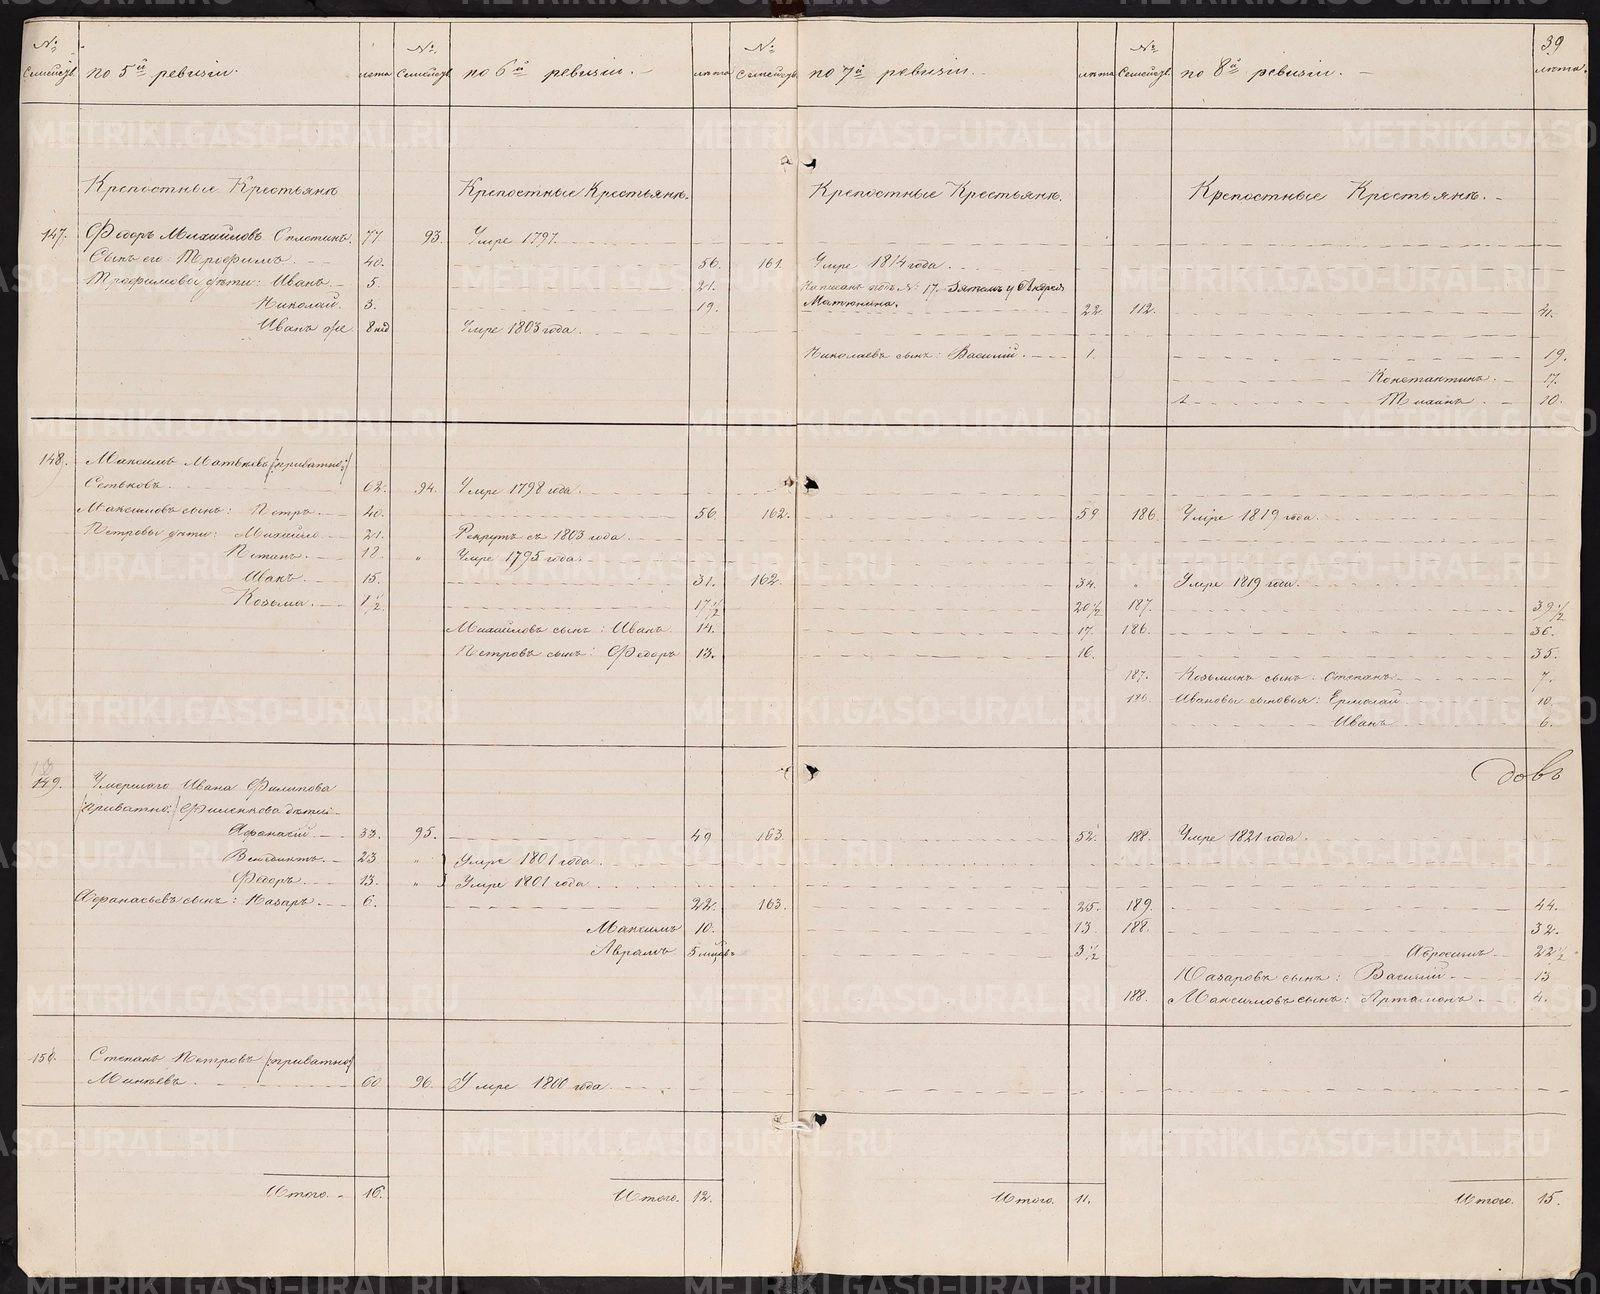 39
№ Семействъ по 5й ревизіи. лета № Семействъ по 6й ревизіи. лета № Семействъ по 7й ревизіи. лета № Семействъ по 8й ревизіи. лета.
Крепостные Крестьянъ Крепостные Крестьянъ. Крепостные Крестьянъ. Крепостные Крестьянъ.
147. Федоръ Михайловъ 77. 93. Умре 1797.
Сынъ его Трофимъ. 40. 56. 161. Умре 1814 года.
Трофимовы дѣти: Иванъ 5. 21. Написанъ подъ № 17. Зятемъ у
Николай. 3. 19. Матюнина. 22. 112. 41.
Иванъ же 8 нед Умре 1803 года.
Николаевъ сынъ: Василий. 1. 19.
Константинъ. 17.
10.
148. Максимъ Матвѣевъ /:приватно:/
62. 94. Умре 1798 года.
Максимовъ сынъ: Петръ 40. 56. 162. 59 186. Умре 1819 года.
Петровы дѣти: Михайло 21. Рекрутъ съ 1803 года.
12. " Умре 1795 года.
Иванъ. 15. 31. 162. 34. " Умре 1819 года.
Козьма. 1/2. 17 1/2 20 1/2 187. 39 1/2
Михайловъ сынъ: Иванъ 14. 17. 186. 36.
Петровъ сынъ: Федоръ 13. 16. 35.
187. Козьминъ сынъ: Степанъ 7.
186. Ивановы сыновья: Ермолай 10.
Иванъ 6.
довъ
149. Умершаго Ивана Филипова
/приватно:/ дѣти
Афанасій. 33. 95. 49 163. 52. 188. Умре 1821 года.
23 " Умре 1801 года.
Федоръ. 13. " Умре 1801 года.
Афанасьевъ сынъ: Назаръ. 6. 22. 163. 25. 189. 44.
Максимъ 10. 13 188. 32.
Аврамъ 3 1/2 22 1/2
Назаровъ сынъ: Василий 13
188. Максимовъ сынъ: Артамонъ 4.
150. Степанъ Петровъ /:приватно/
60 96. Умре 1800 года.
Итого. 16. Итого. 12. Итого. 11. Итого. 15.
METRIKI.GASO-URAL.RU